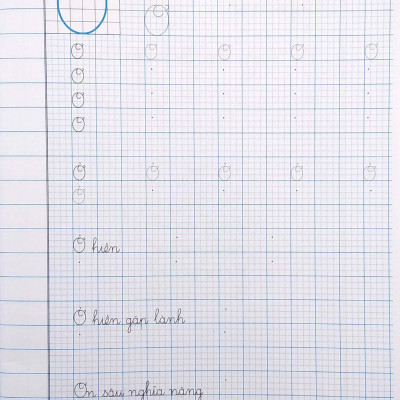 Ơ
Ơ Ơ Ơ Ơ Ơ
Ơ
Ơ
Ơ
Ở Ở Ở Ở Ở
Ở
Ở hiền
Ở hiền gặp lành
Ơn sâu nghĩa nặng